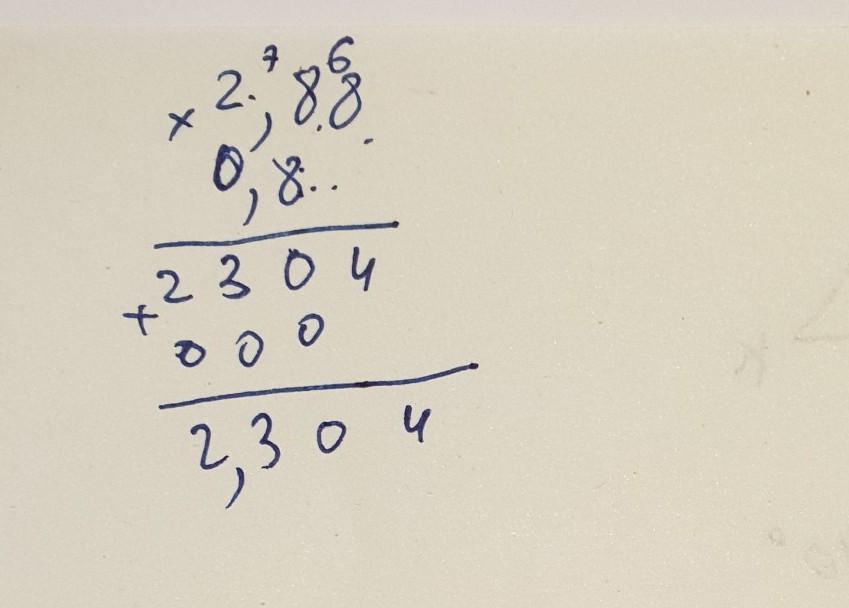 7 6
× 2,88
0,8
2304
+ 000
2,304